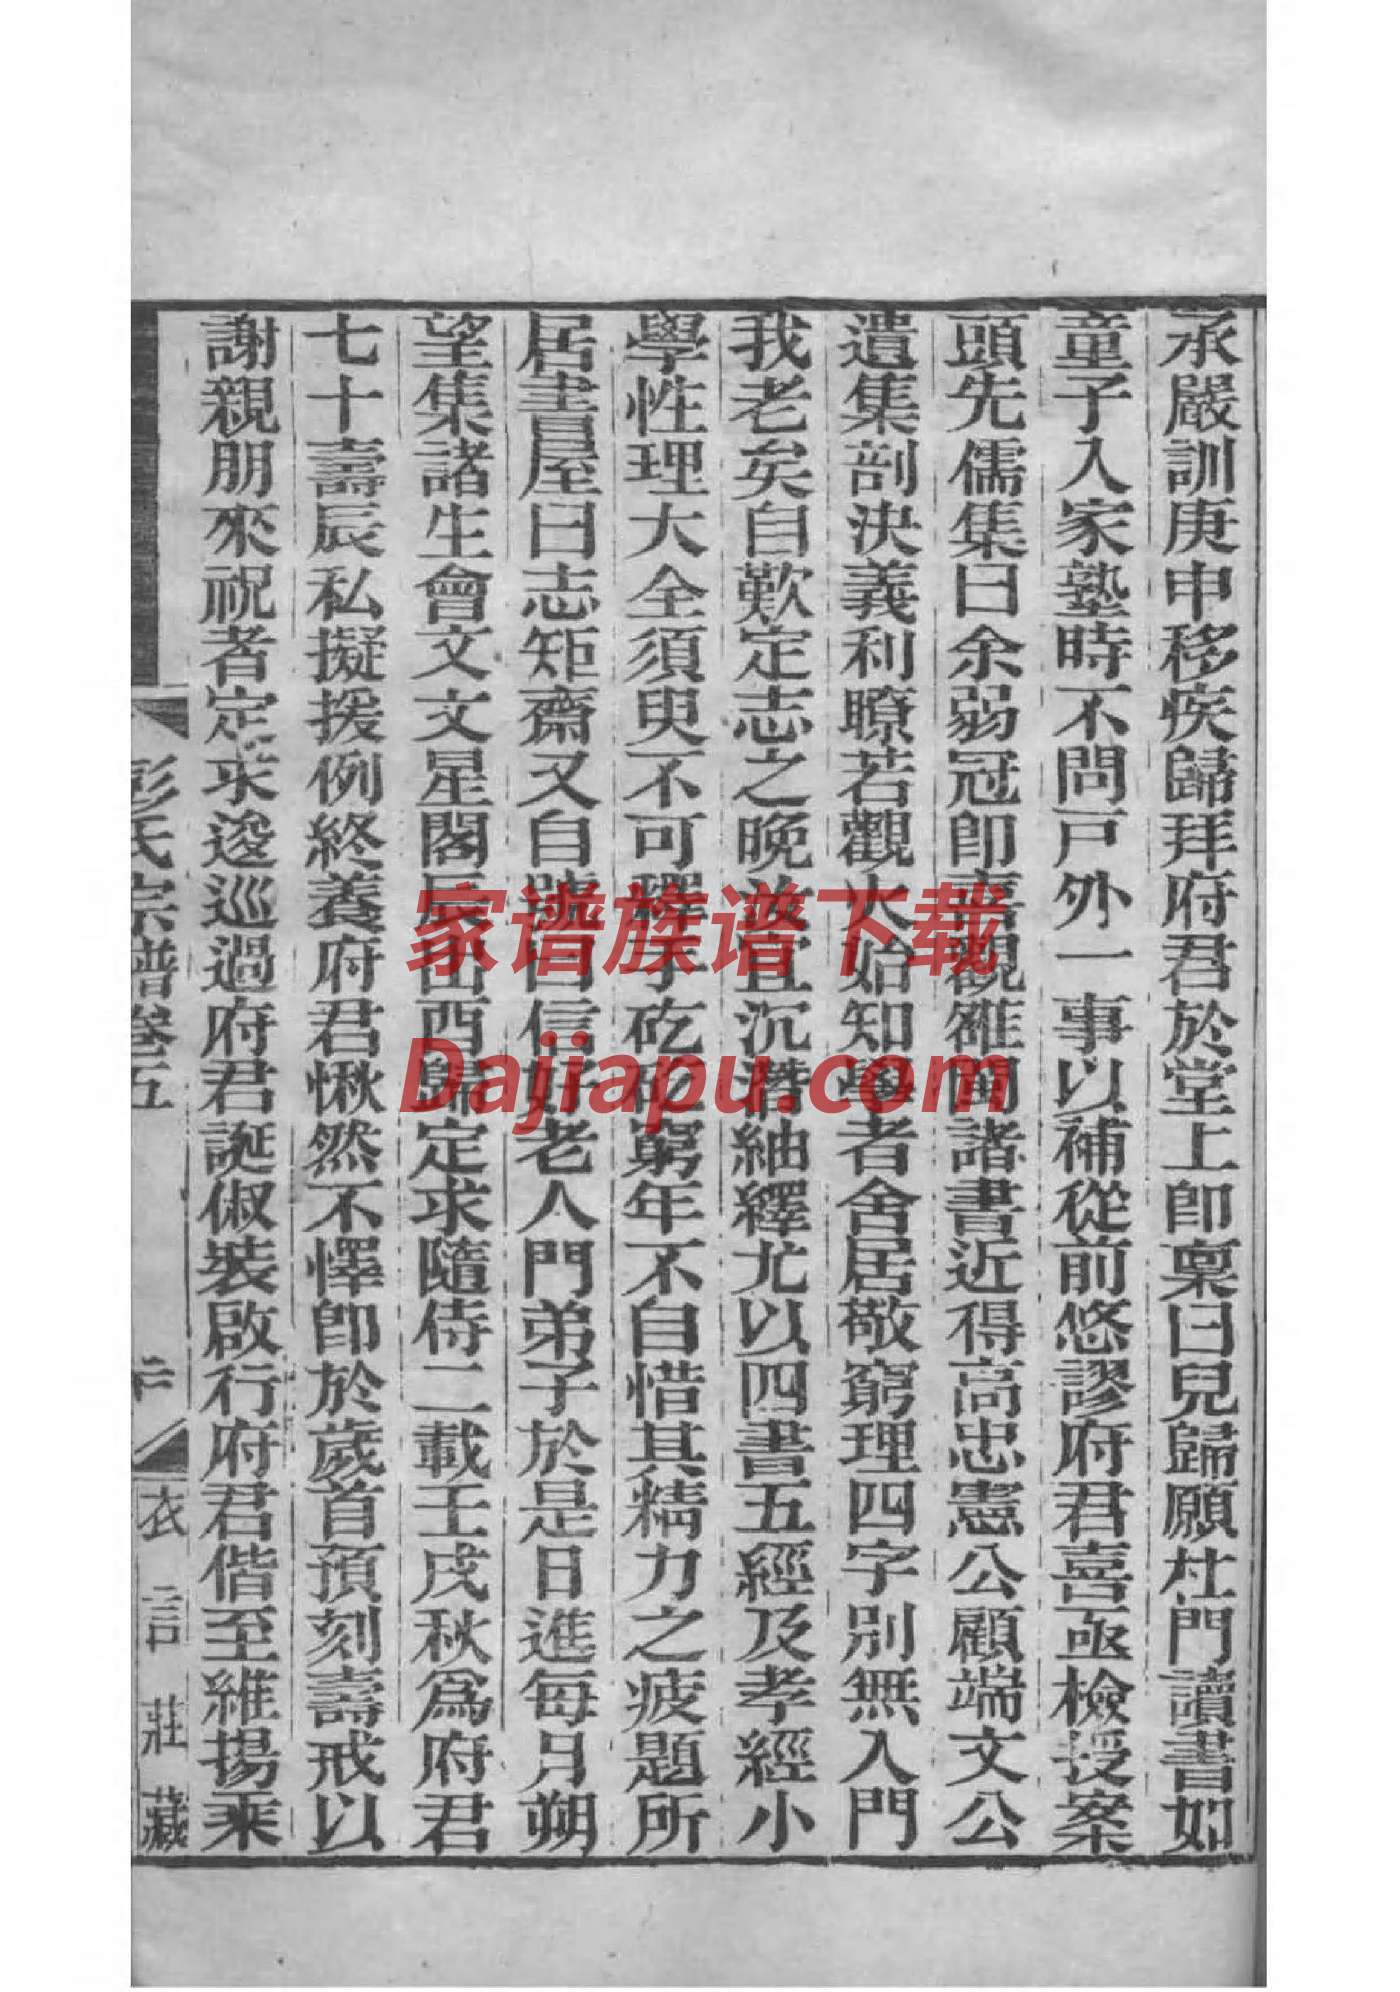 承嚴訓庚申移疾歸拜府君於堂上卽稟曰兒歸願杜門讀書如
童子入家塾時不問戸外一事以補從前悠謬府君喜亟檢授案
頭先儒集曰余弱冠卽喜觀雒閩諸書近得高忠憲公顧端文公
遺集剖決義利瞭若觀火始知學者舍居敬窮理四字別無入門
我老矣自歎定志之晚汝宜沉潛紬繹尤以四書五經及孝經小
學性理大全須臾不可釋手矻矻窮年不自惜其精力之疲題所
居書屋曰志矩齋又自號曰信好老人門弟子於是日進每月朔
望集諸生會文文星閣辰出酉歸定求隨侍二載壬戌秋爲府君
七十壽辰私擬援例終養府君愀然不懌卽於歲首預刻壽戒以
謝親朋來祝者定求逡巡過府君誕俶裝啟行府君偕至維揚乘
彭氏宗譜卷五
衣言莊藏
家谱族谱下载
Dajiapu.com